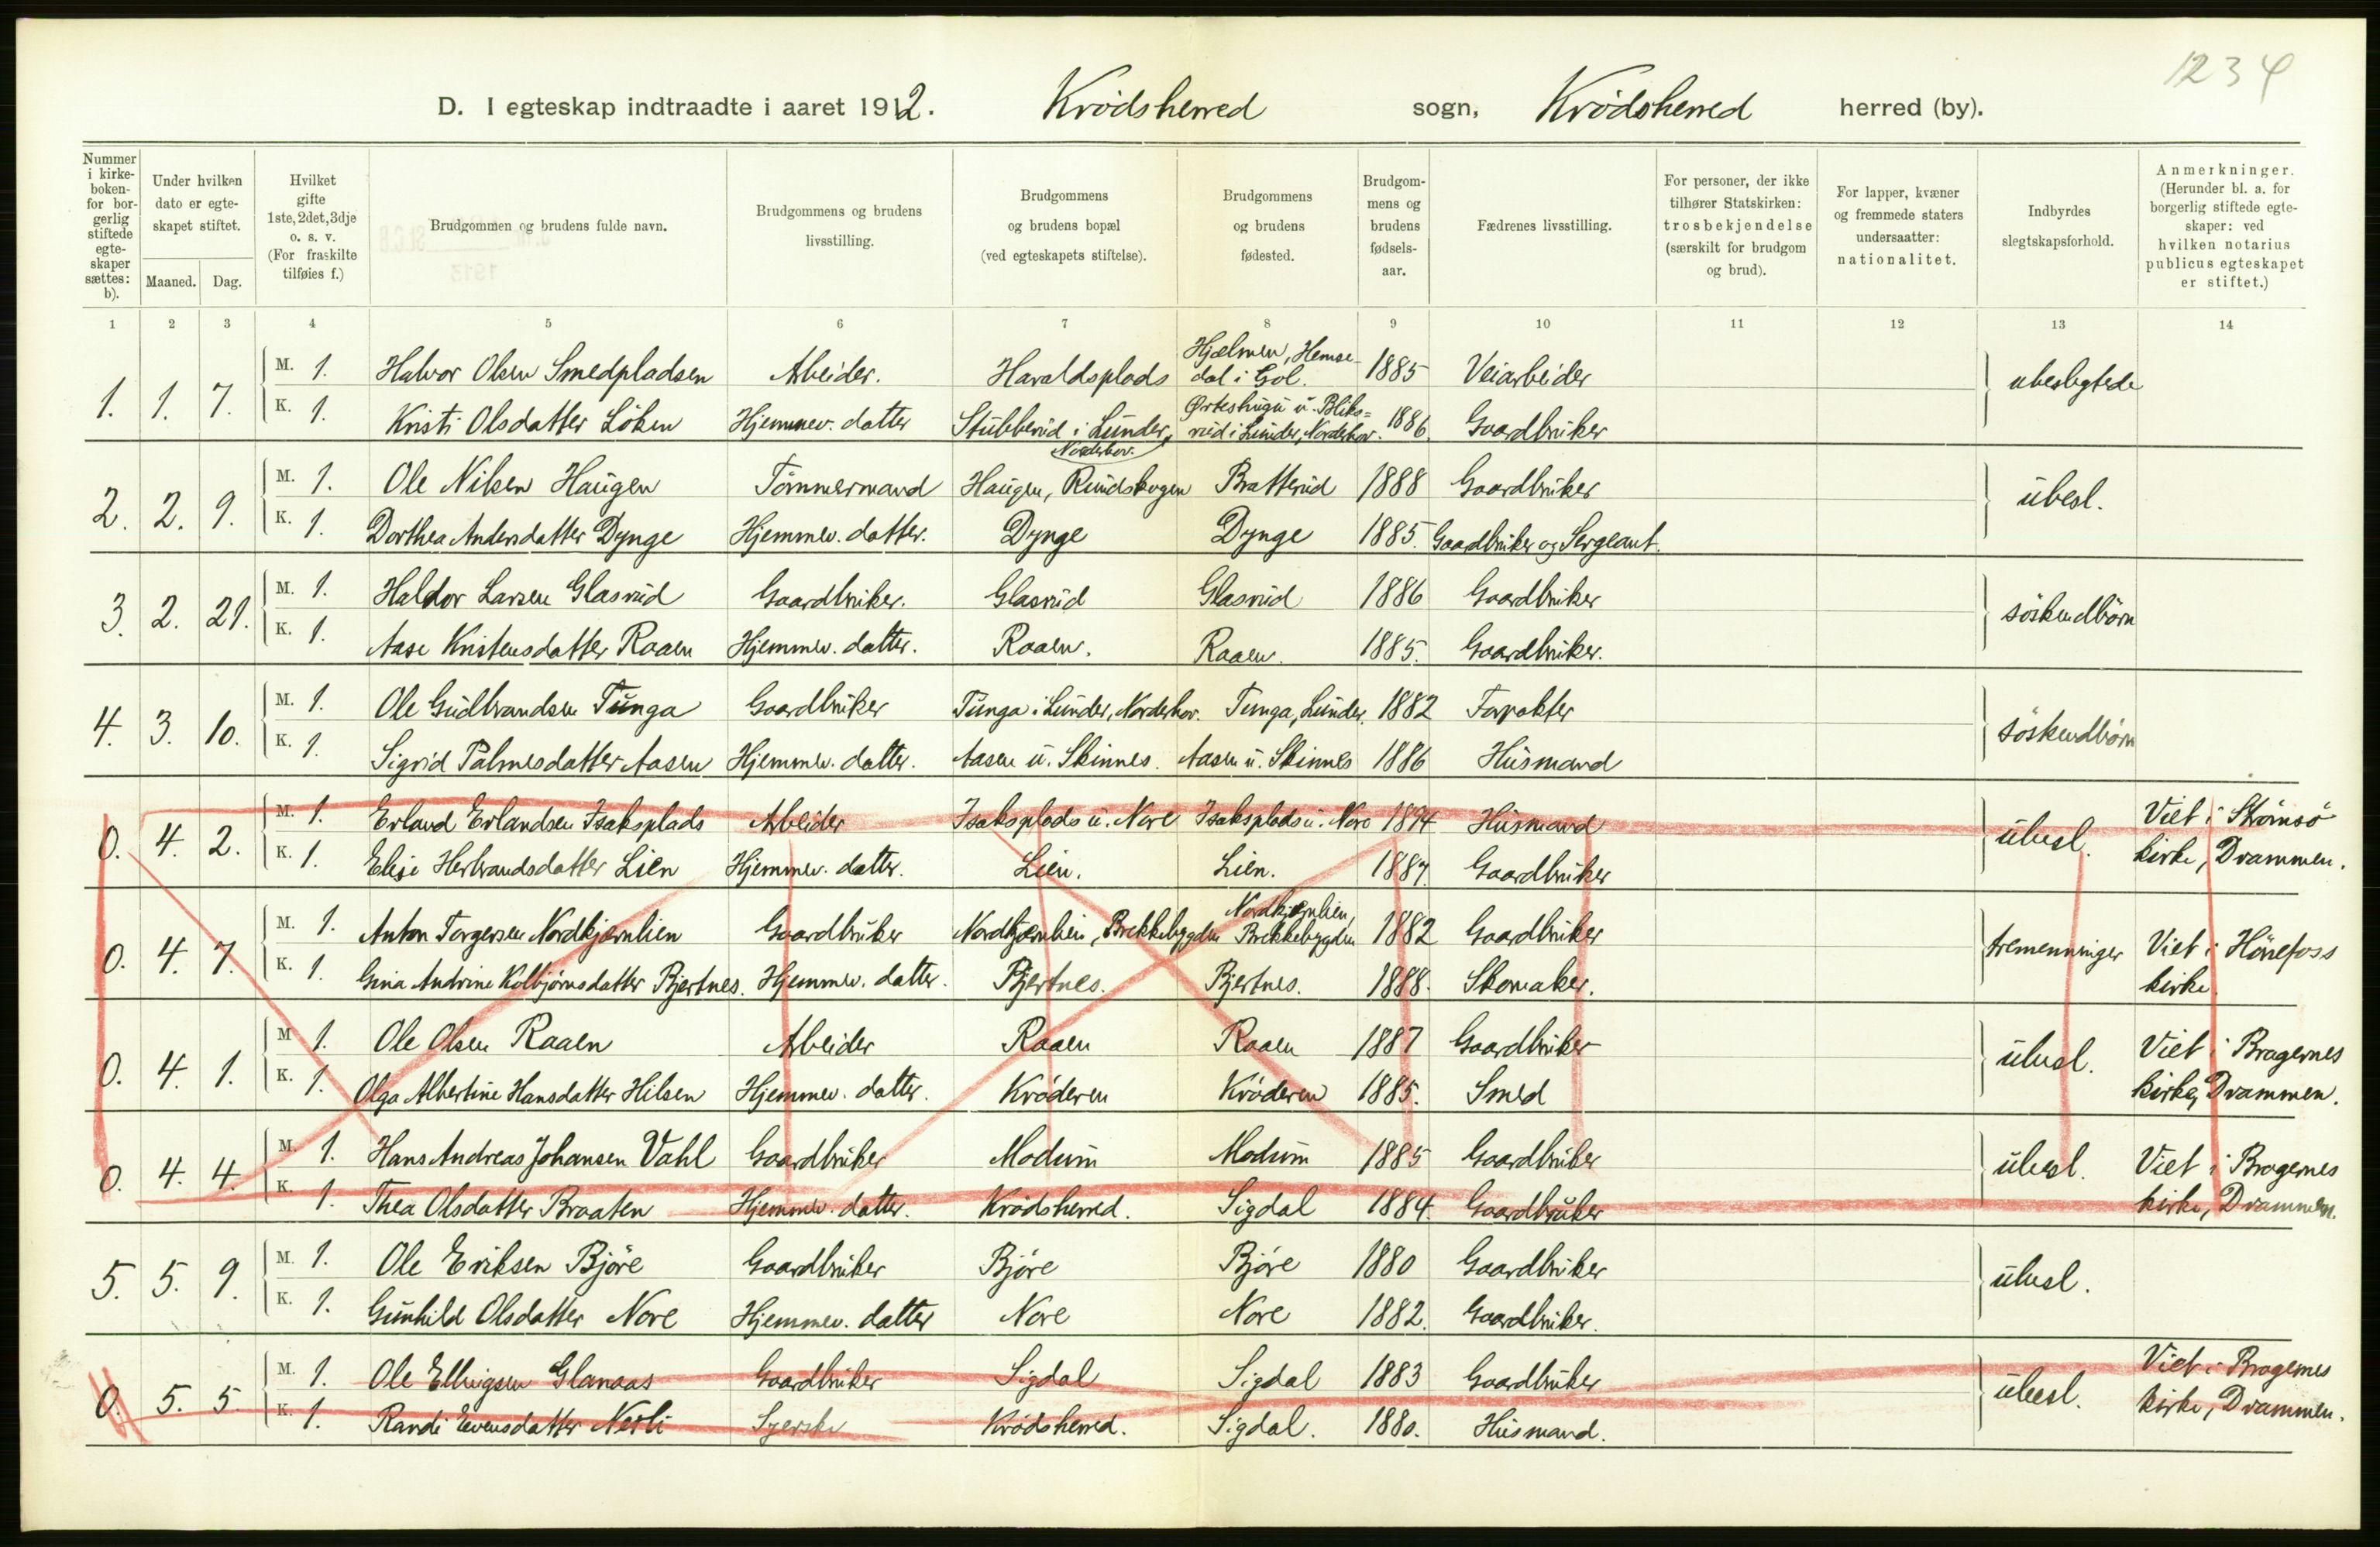 1234
D. I egteskap indtraadte i aaret 1912. Krødsherred sogn, Krødsherred herred (by).
Nummer i kirkeboken- for borgerlig stiftede egteskaper sættes: b).
Under hvilken dato er egteskapet stiftet.
Maaned. Dag.
Hvilket gifte 1ste, 2det, 3dje o. s. v. (For fraskilte tilføies f.)
Brudgommen og brudens fulde navn.
Brudgommens og brudens livsstilling.
Brudgommens og brudens bopæl (ved egteskapets stiftelse).
Brudgommens og brudens fødested.
Brudgommens og brudens fødselsaar.
Fædrenes livsstilling.
For personer, der ikke tilhører Statskirken: trosbekjendelse (særskilt for brudgom og brud).
For lapper, kvæner og fremmede staters undersaatter: nationalitet.
Indbyrdes slegtskapsforhold.
Anmerkninger. (Herunder bl. a. for borgerlig stiftede egteskaper: ved hvilken notarius publicus egteskapet er stiftet.)
1 2 3 4 5 6 7 8 9 10 11 12 13 14
1. 1. 7. M. 1. Halvor Olsen Smedpladsen Arbeider. Haraldsplads Hjælmen, Hemsedal i Gol. 1885 Veiarbeider ubeslegtede
K. 1. Kristi Olsdatter Löken Hjemmev. datter Stubberud i Lunder, Norderhov. Ørteshugu u. Bliksrud i Lunder, Norderhov. 1886. Gaardbruker
2. 2. 9. M. 1. Ole Nilsen Haugen Tömmermand Haugen, Rundskogen Bratterud 1888 Gaardbruker ubesl.
K. 1. Dorthea Andersdatter Dynge Hjemmev. datter. Dynge Dynge 1885. Gaardbruker og Sergeant.
3. 2. 21. M. 1. Haldor Larsen Glasrud Gaardbruker. Glasrud Glasrud 1886 Gaardbruker söskendbörn
K. 1. Aase Kristensdatter Raaen Hjemmev. datter. Raaen. Raaen. 1885. Gaardbruker.
4. 3. 10. M. 1. Ole Gudbrandsen Tunga Gaardbruker Tunga i Lunder, Norderhov. Tunga, Lunder. 1882 Forpakter söskendbörn
K. 1. Sigrid Palmesdatter Aasen Hjemmev. datter. Aasen u. Skinnes. Aasen u. Skinnes 1886 Husmand
0. 4. 2. M. 1. Erland Erlandsen Isaksplads Arbeider Isaksplads u. Nore Isaksplads u. Nore 1894 Husmand ubesl. Viet i Strömsö
K. 1. Elise Herbrandsdatter Lien Hjemmev. datter. Lien. Lien. 1887. Gaardbruker kirke, Drammen.
0. 4. 7. M. 1. Anton Torgersen Nordkjærnlien Gaardbruker Nordkjærnlien, Brekkebygden Nordkjærnlien, Brekkebygden 1882 Gaardbruker tremenninger Viet i Hönefoss
K. 1. Gina Andrine Kolbjørnsdatter Bjertnes. Hjemmev. datter. Bjertnes. Bjertnes. 1888. Skomaker. kirke.
0. 4. 1. M 1. Ole Olsen Raaen Arbeider Raaen Raaen 1887 Gaardbruker ubesl. Viet i Bragernes
K. 1. Olga Albertine Hansdatter Hilsen Hjemmev. datter. Kröderen Kröderen 1885. Smed kirke, Drammen.
0. 4. 4. M. 1. Hans Andreas Johansen Vahl Gaardbruker Modum Modum 1885 Gaardbruker ubesl. Viet i Bragernes
K. 1. Thea Olsdatter Braaten Hjemmev. datter. Krødsherred. Sigdal 1884. Gaardbruker kirke, Drammen.
5. 5. 9. M. 1. Ole Eriksen Björe Gaardbruker Björe Björe 1880 Gaardbruker ubesl.
K. 1. Gunhild Olsdatter Nore Hjemmev. datter Nore Nore 1882. Gaardbruker.
0. 5. 5. M. 1. Ole Ellingsen Glanaas Gaardbruker Sigdal Sigdal 1883 Gaardbruker ubesl. Viet i Bragernes
K. 1. Randi Evensdatter Nerli Syerske Krødsherred. Sigdal. 1880. Husmand. kirke, Drammen.